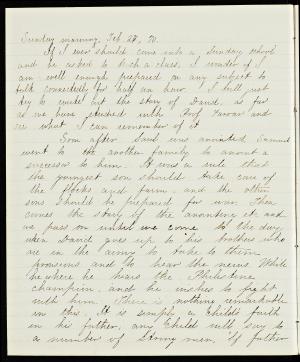 Sunday morning, Feb. 27, 70.
If I ever should come into a Sunday school
and be asked to teach a class, I wonder if I
am well enough prepared on any subject to
talk connectedly for half an hour. I will just
try to write out the story of David, as far
as we have studied with Prof. and
see what I can remember of it.
Soon after Saul was anointed Samuel
went to the another family to anoint a
successor to him. It was a rule that
the youngest son should take care of
the flocks and farm, and the other
sons should be prepared for war. Then
comes the story of the anointing etc. and
we pass on until we come to the day
when David goes up to his brothers who
are in the army to take to them
provisions and to hear the news. While
he where he hears the Philistine
champion, and he wishes to fight
with him. There is nothing remarkable
in this. It is simply a child's faith
in his father. Any child will say to
a number of strong men, "If father